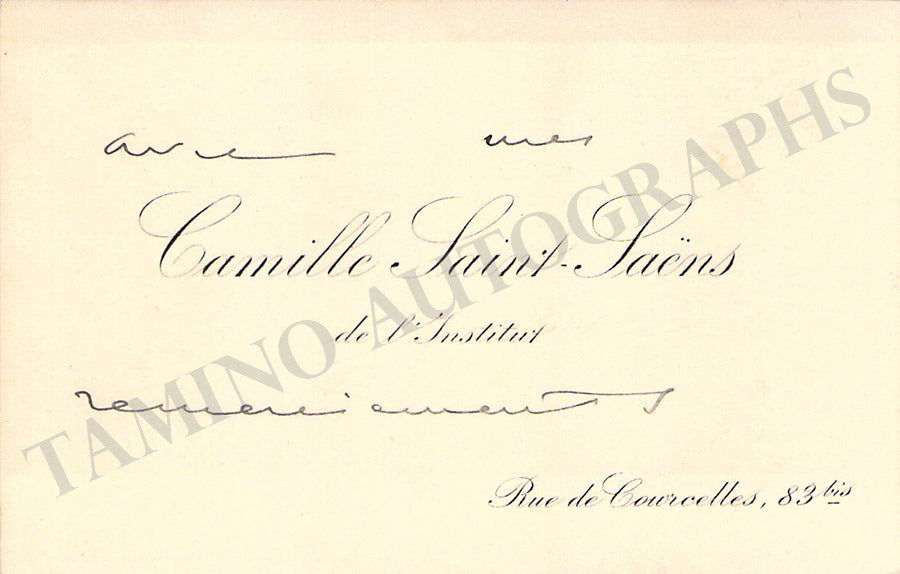 avec mes
Camille Saint-Saëns
de l'Institut
remerciements
Rue de Courcelles, 83 bis
TAMINO AUTOGRAPHS